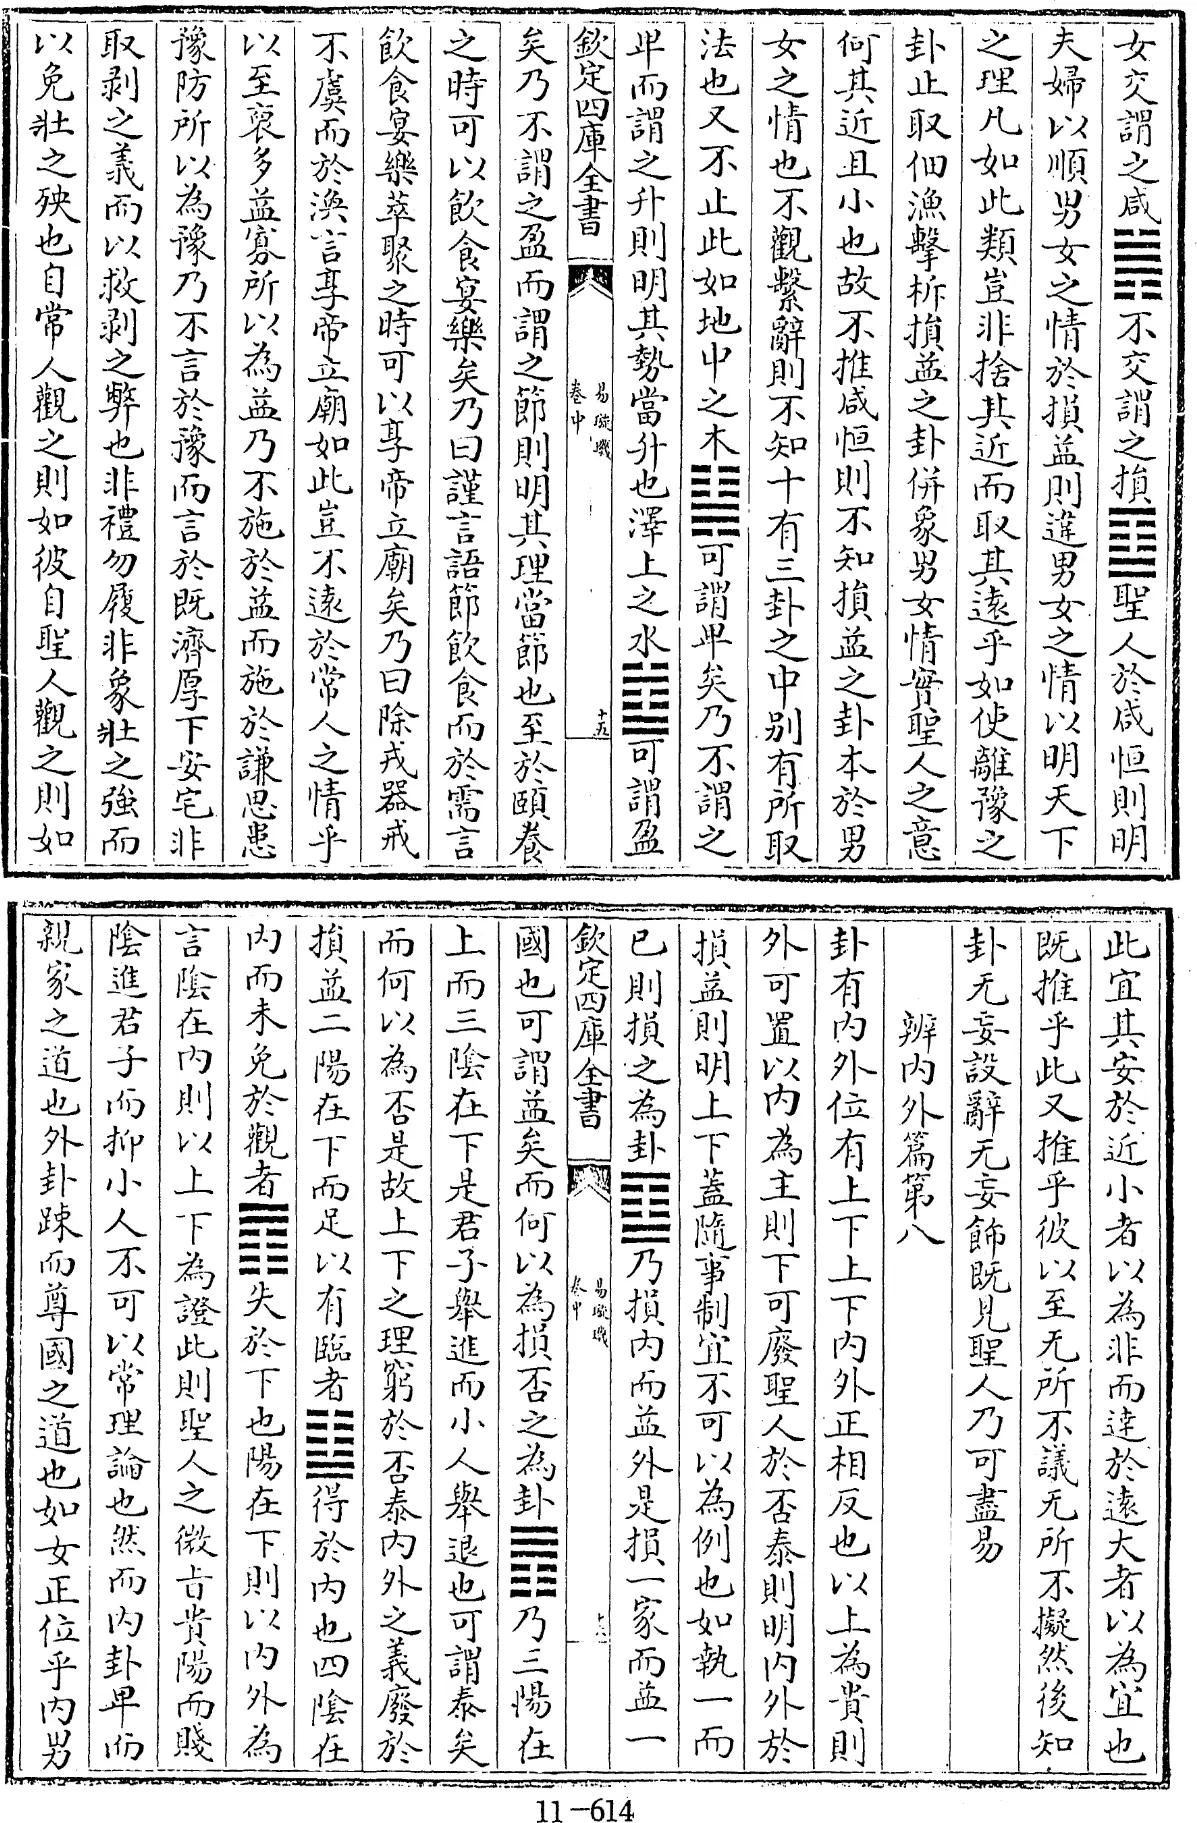 女交謂之咸䷞不交謂之損䷨聖人於咸恒則明
夫婦以順男女之情於損益則違男女之情以明天下
之理凡如此類豈非捨其近而取其遠乎如使離豫之
卦止取佃漁擊柝損益之卦併象男女情實聖人之意
何其近且小也故不推咸恒則不知損益之卦本於男
女之情也不觀繫辭則不知十有三卦之中別有所取
法也又不止此如地中之木䷭可謂卑矣乃不謂之
卑而謂之升則明其勢當升也澤上之水䷻可謂盈
欽定四庫全書
易璇璣
卷中
十五
矣乃不謂之盈而謂之節則明其理當節也至於頤養
之時可以飲食宴樂矣乃曰謹言語節飲食而於需言
飲食宴樂萃聚之時可以享帝立廟矣乃曰除戎器戒
不虞而於渙言享帝立廟如此豈不遠於常人之情乎
以至裒多益寡所以為益乃不施於益而施於謙思患
豫防所以為豫乃不言於豫而言於既濟厚下安宅非
取剥之義而以救剥之弊也非禮勿履非象壯之強而
以免壯之殃也自常人觀之則如彼自聖人觀之則如
此宜其安於近小者以為非而達於遠大者以為宜也
既推乎此又推乎彼以至无所不議无所不擬然後知
卦无妄設辭无妄飾既見聖人乃可盡易
辨内外篇第八
卦有内外位有上下上下内外正相反也以上為貴則
外可置以内為主則下可廢聖人於否泰則明内外於
損益則明上下蓋隨事制宜不可以為例也如執一而
已則損之為卦䷨乃損内而益外是損一家而益一
欽定四庫全書
易璇璣
卷中
十六
國也可謂益矣而何以為損否之為卦䷋乃三陽在
上而三陰在下是君子舉進而小人舉退也可謂泰矣
而何以為否是故上下之理窮於否泰内外之義廢於
損益二陽在下而足以有臨者䷒得於内也四陰在
内而未免於觀者䷓失於下也陽在下則以内外為
言陰在内則以上下為證此則聖人之微旨貴陽而賤
陰進君子而抑小人不可以常理論也然而内卦卑而
親家之道也外卦踈而尊國之道也如女正位乎内男
11-614